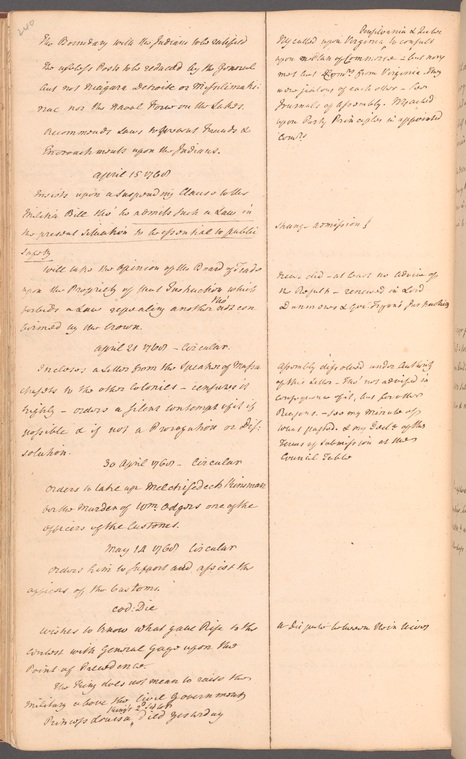 240
The Boundary with the Indians to be ratified
The useless Posts to be reduced by the General
but not Niagara Detroit or Missilimaki-
nac nor the Naval Force on the Lakes.
Recommends Laws to prevent Frauds &
Encroachments upon the Indians.
April 15 1768
Insists upon a Suspending Clause to the
Militia Bill tho' he admits such a Law in
the present Situation to be essential to public
Safety
Will take the Opinion of the Board of Trade
upon the Propriety of that Instruction which
forbids a Law repealing another tho' not con
firmed by the Crown.
April 21 1768 - Circular
Incloses a Letter from the Speaker of Massa
chusets to the other Colonies - censures it
highly - orders a silent contempt of it if
possible & if not a Prorogation or Diss
solution.
30 April 1768 - Circular
Orders to take up Melchisedech Kinsman
for the Murder of Wm. Odgers one of the
Officers of the Customs.
May 14 1768 Circular
Orders him to support and assist the
officers of the Customs.
eod: Die
Wishes to know what gave Rise to the
Contest with General Gage upon the
Point of Precedence.
The King does not mean to raise the
Military above the Civil Government
Princess Louisa Died Yesterday
Pensilvania & Quebec
They called upon Virginia to consult
upon mutual Commerce - but
met but from Virginia They
were jealous of each other - See
Journals of Assembly. They acted
upon Party Principles in appointed
Comrs
Strange admission!
never did - at least no advice of
the Result - renewed in Lord
Dunmore's & Gov: Tryon's Instructions
Assembly dissolved under Authority
of this Letter - Tho' not advised in
consequence of it, but for other
Reasons. - See my Minute of
what passed & my of the
Terms of submission at the
Council Table
A Dispute between their